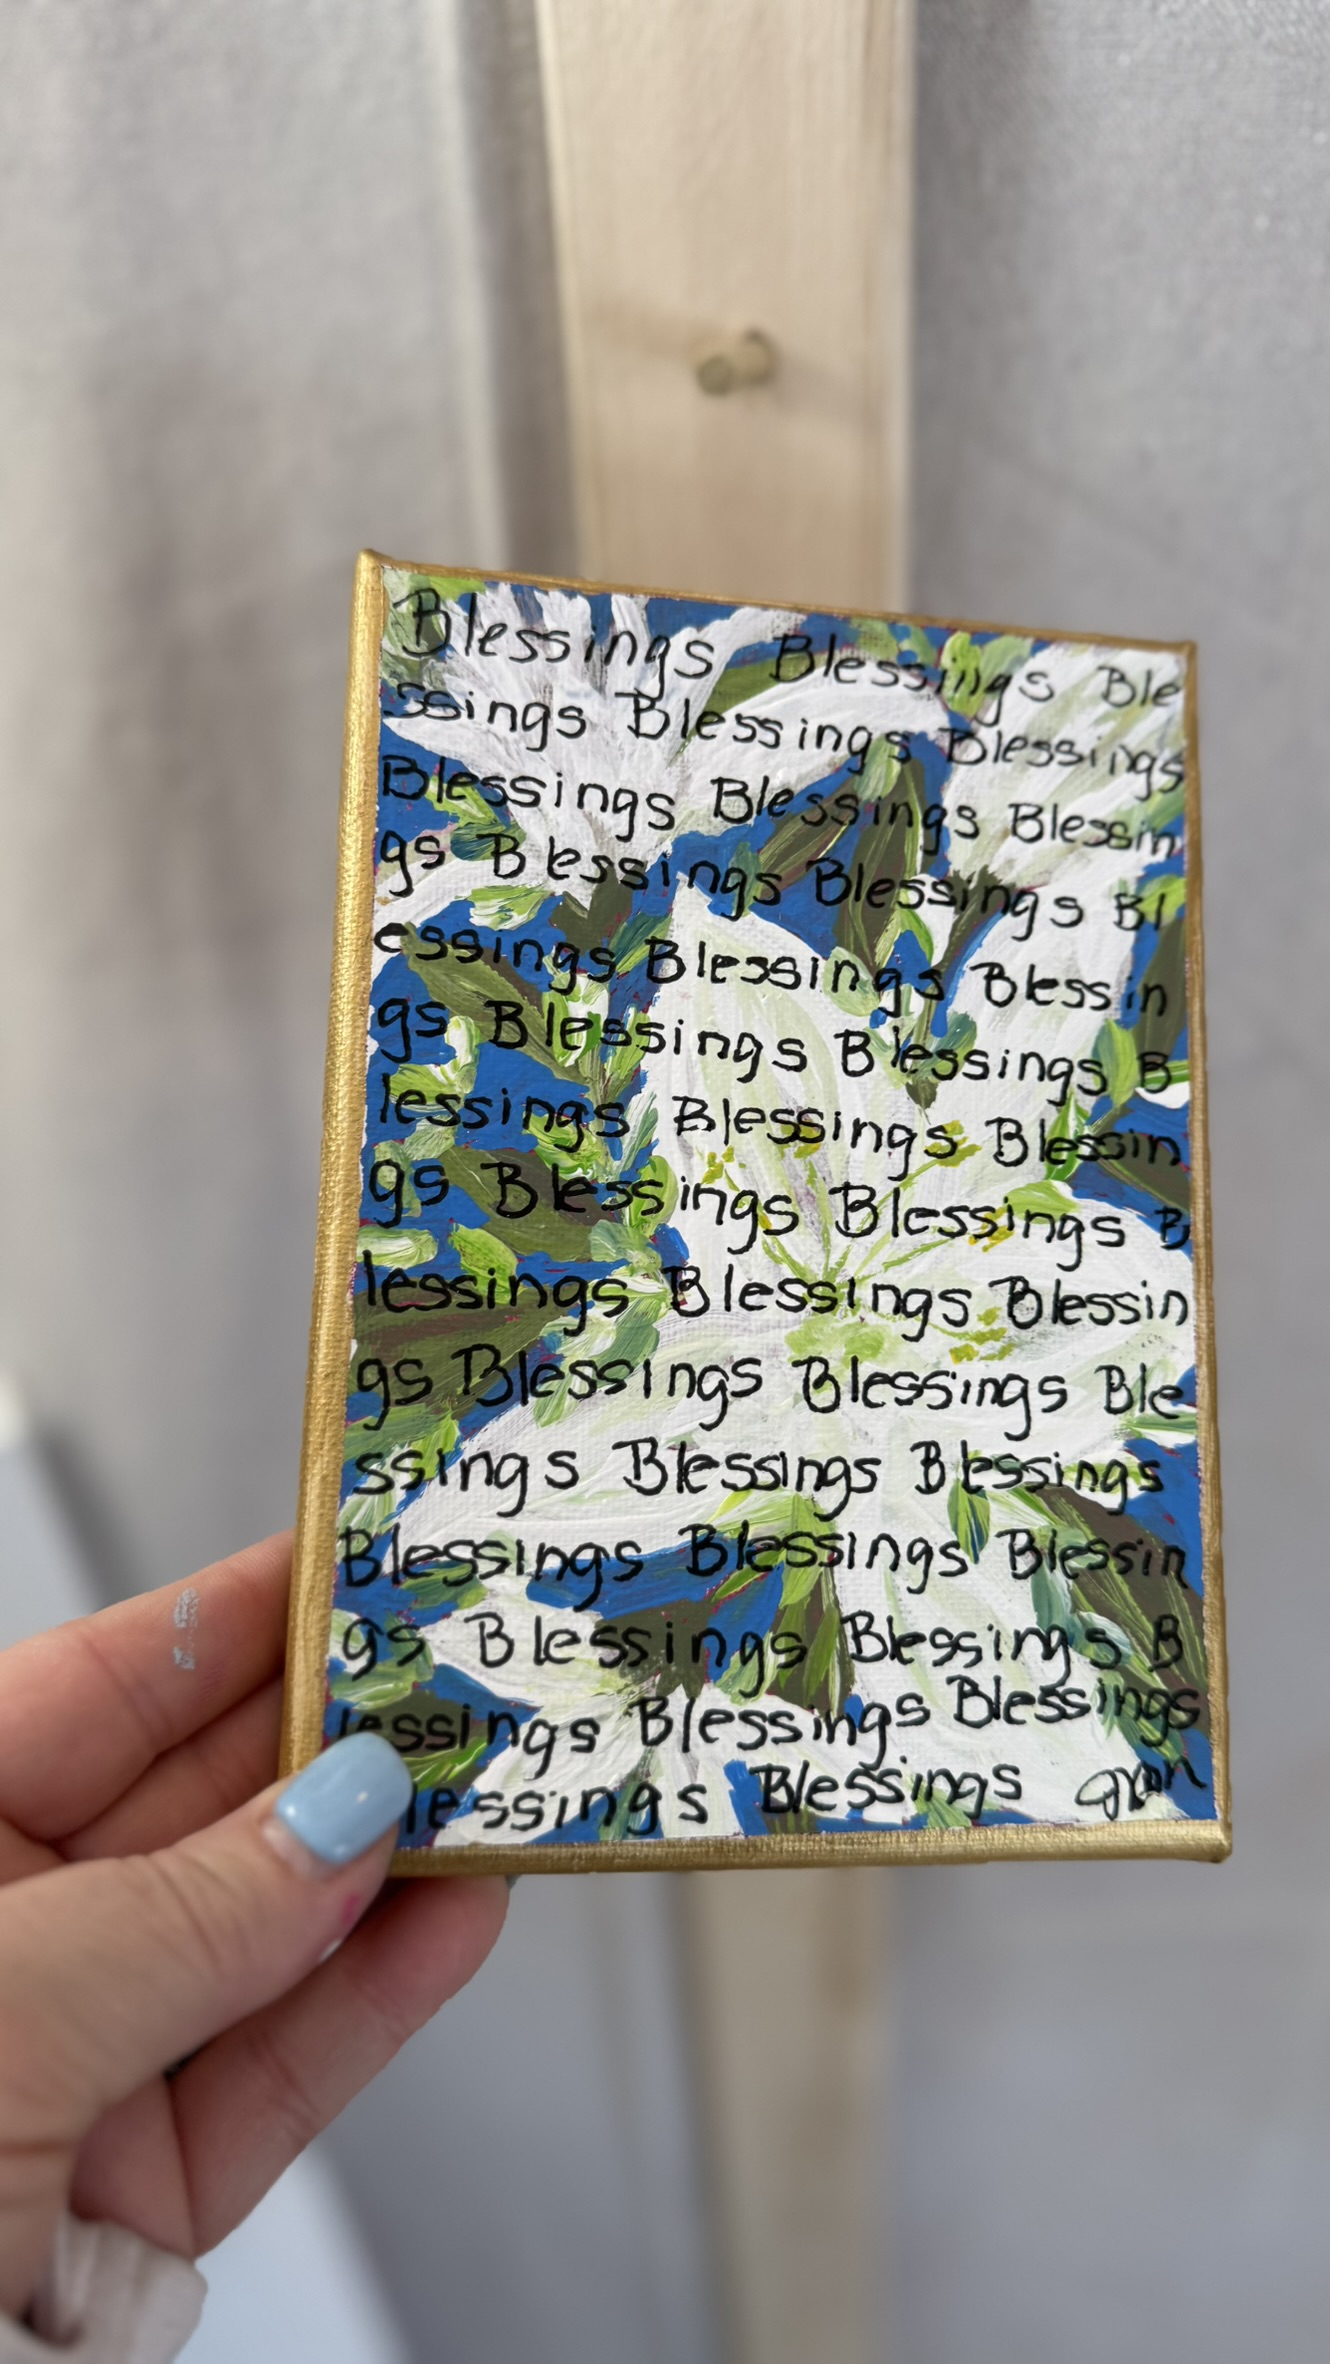 Blessings Blessings Ble
ssings Blessings Blessings
Blessings Blessings Blessin
gs Blessings Blessings Bl
essings Blessings Blessin
gs Blessings Blessings B
lessings Blessings Blessin
gs Blessings Blessings B
lessings Blessings Blessin
gs Blessings Blessings Ble
ssings Blessings Blessings
Blessings Blessings Blessin
gs Blessings Blessings B
lessings Blessings Blessings
lessings Blessings